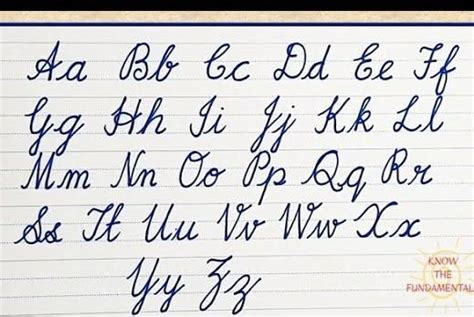 Aa Bb Cc Dd Ee Ff
Gg Hh Ii Jj Kk Ll
Mm Nn Oo Pp Qq Rr
Ss Tt Uu Vv Ww Xx
Yy Zz
KNOW
THE
FUNDAMENTAL